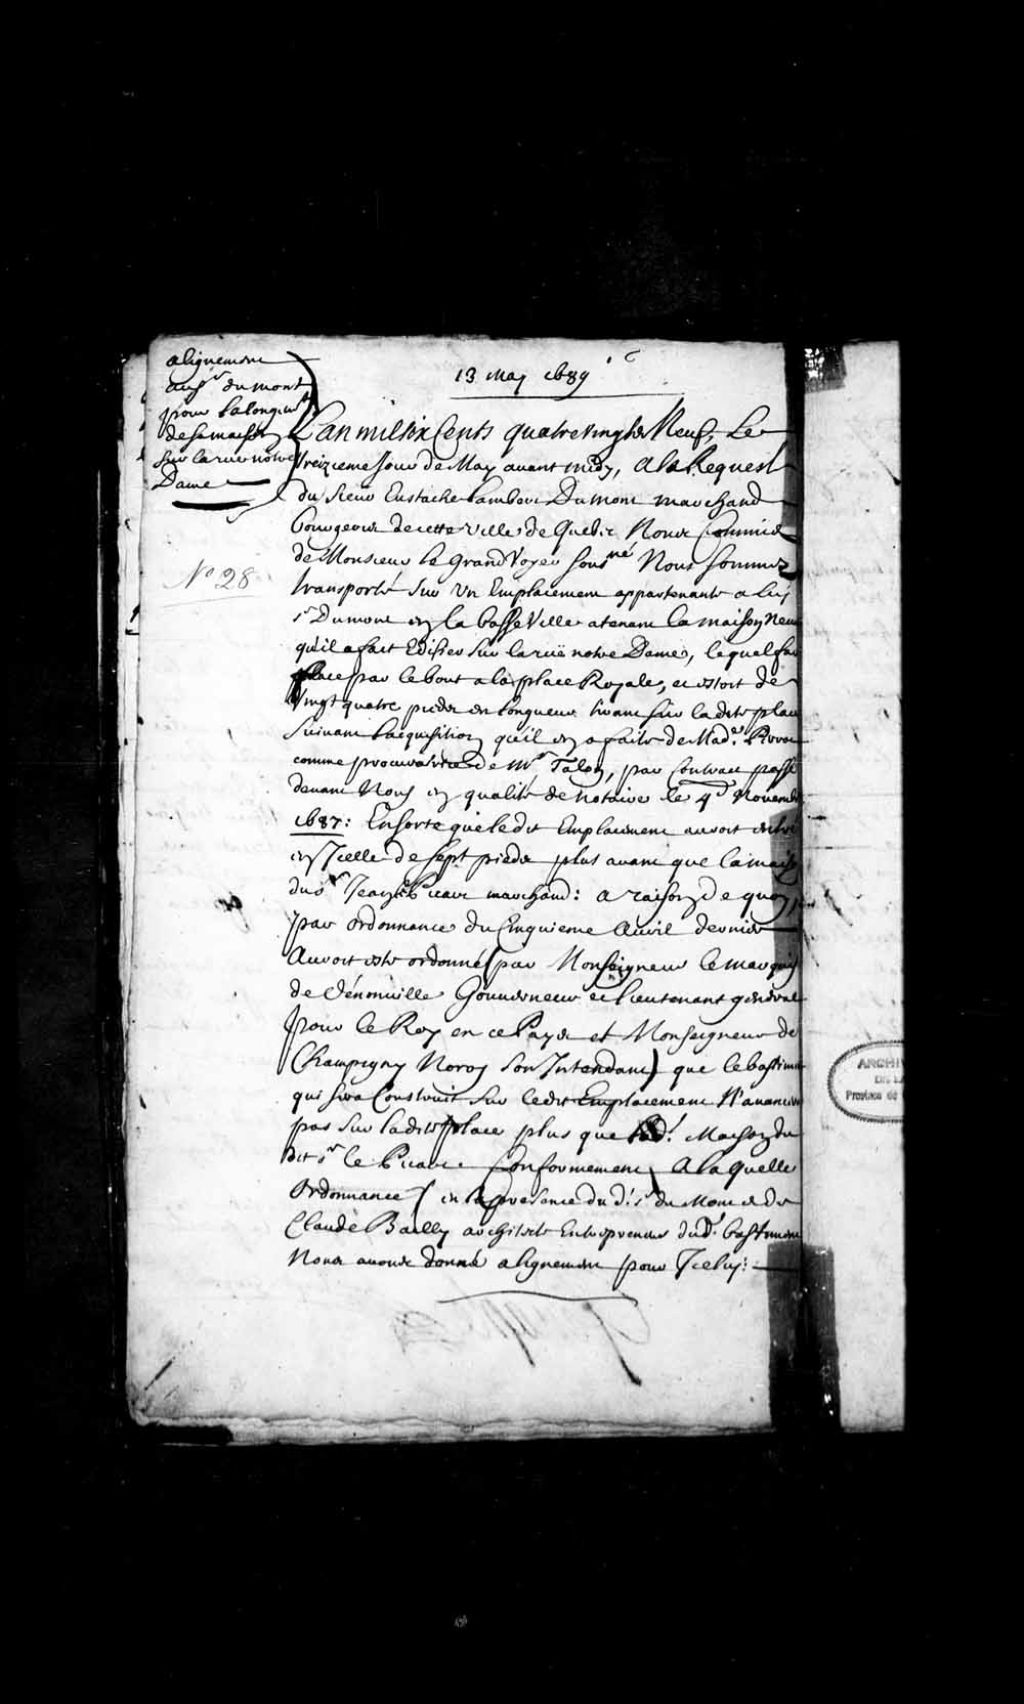 alignement
au sr dumont
pour la longeur
de sa maison
sur la rue notre
Dame
No 28
13 may 1689
L'an mil six Cents quatre vingts Neuf, Le
treizieme Jour de May avant midy, a la Requeste
du Sieur Eustache Lambert Dumont marchand
bourgeois de cette ville de Quebec Nous Commis
de Monsieur le Grand Voyer sousné Nous sommes
transporté sur un Emplacement appartenant a luy
sr Dumont en la basse Ville atenant la maison Neuve
qu'il a fait Edifier sur la rue notre Dame, lequel fai
place par le bout a la place Royale, et estoit de
Vingt quatre pieds en longueur sur ladite place
Suivant l'acquisition qu'il en a faite de Made
comme procuratrice de Mr Talon, par Contract passé
devant Nous en qualité de notaire le 4e Novembre
1687: En sorte que ledit Emplacement auroit entré
en Icelle de sept pieds plus avant que la maison
du sr Jean le Picart marchand: a raison de quoy,
par ordonnance du Cinquieme Avril dernier
Auroit esté ordonné par Monseigneur le marquis
de Dénonville Gouverneur et lieutenant general
pour le Roy en ce Pays et Monseigneur de
Champigny Noroy son Intendant) que le bastiment
qui sera Construit sur ledit Emplacement N'avancera
pas sur ladite place plus que lad. Maison du
dit sr le Picart Conformement A laquelle
Ordonnance en la presence du d. sr du Mont et de
Claude Bailly architecte Entrepreneur dud. bastiment
Nous avons donné alignement pour Iceluy:
ARCHIV
DE LA
Province de